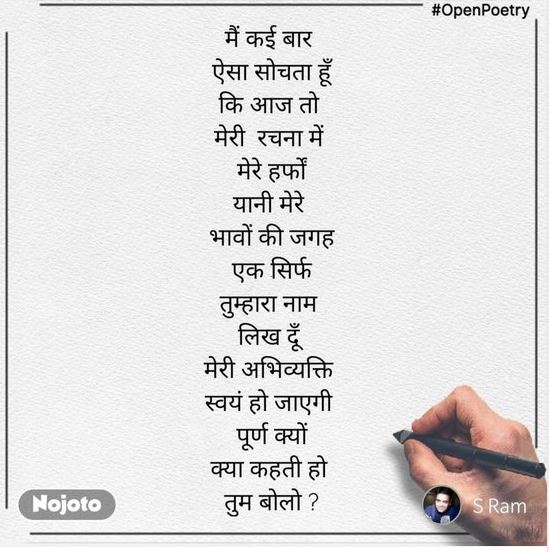 #OpenPoetry
मैं कई बार
ऐसा सोचता हूँ
कि आज तो
मेरी रचना में
मेरे हर्फों
यानी मेरे
भावों की जगह
एक सिर्फ
तुम्हारा नाम
लिख दूँ
मेरी अभिव्यक्ति
स्वयं हो जाएगी
पूर्ण क्यों
क्या कहती हो
तुम बोलो ?
Nojoto
S Ram